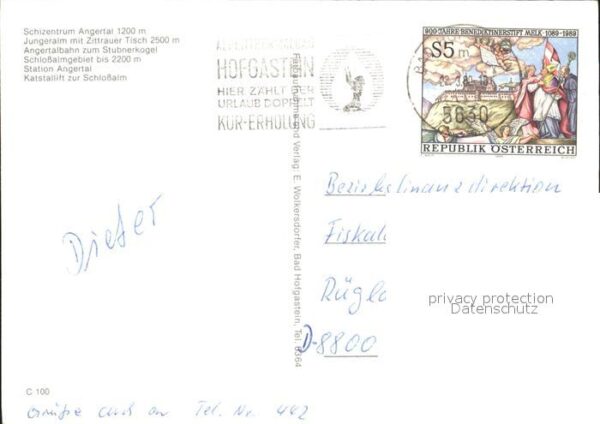 Schizentrum Angertal 1200 m
Jungeralm mit Zittrauer Tisch 2500 m
Angertalbahn zum Stubnerkogel
Schloßalmgebiet bis 2200 m
Station Angertal
Katstallift zur Schloßalm
HOFGASTEIN
HIER ZÄHLT DER
URLAUB DOPPELT
KUR-ERHOLUNG
5630
900 JAHRE BENEDIKTINERSTIFT MELK 1089-1989
S5
REPUBLIK ÖSTERREICH
Verlag: E. Wolkersdorfer, Bad Hofgastein, Tel. 6364
Dieter
Bezirksfinanzdirektion
Fiskal
Rügl
D-8800
privacy protection
Datenschutz
C 100
Grüße auch an Tel. Nr. 442